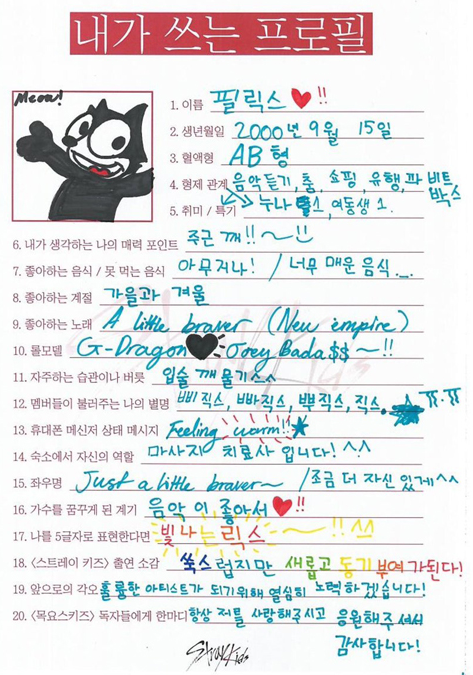 내가 쓰는 프로필
Meow!
1. 이름 필릭스 ♥!!
2. 생년월일 2000년 9월 15일
3. 혈액형 AB형
4. 형제 관계 음악듣기, 춤, 쇼핑, 유행, 파 비트
박스
5. 취미 / 특기 누나 1, 여동생 1.
6. 내가 생각하는 나의 매력 포인트 주근 깨!!~
7. 좋아하는 음식 / 못 먹는 음식 아무거나! / 너무 매운 음식._.
8. 좋아하는 계절 가을과 겨울
9. 좋아하는 노래 A little braver (New empire)
10. 롤모델 G-Dragon ♥ Joey Bada$$ ~!!
11. 자주하는 습관이나 버릇 입술 깨물기ㅅㅅ
12. 멤버들이 불러주는 나의 별명 삐직스, 빠직스, 뿌직스, 직스, ㅠ.ㅠ
13. 휴대폰 메신저 상태 메시지 Feeling warm!!
14. 숙소에서 자신의 역할 마사지 치료사 입니다! ^^
15. 좌우명 Just a little braver~ /조금 더 자신 있게^^
16. 가수를 꿈꾸게 된 계기 음악이 좋아서 ♥!!
17. 나를 5글자로 표현한다면 빛나는 릭스 ~!!
18. <스트레이 키즈> 출연 소감 쑥스럽지만 새롭고 동기부여가된다!
19. 앞으로의 각오 훌륭한 아티스트가 되기위해 열심히 노력하겠습니다!
20. <목요스키즈> 독자들에게 한마디 항상 저를 사랑해주시고 응원해주셔서
감사합니다!
Stray Kids